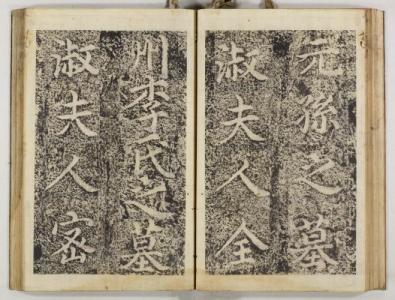 元孫之墓
淑夫人全
州李氏之墓
淑夫人密